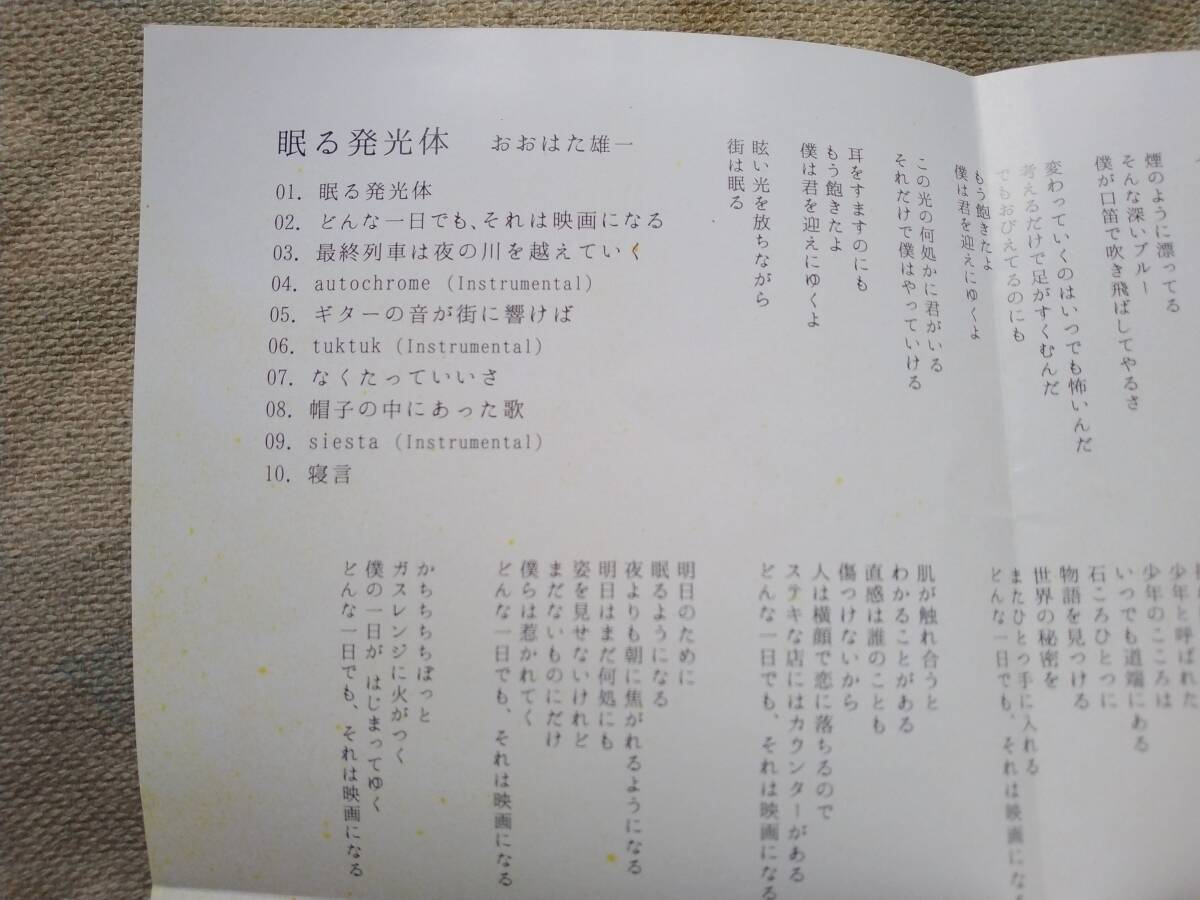 眠る発光体　おおはた雄一
01. 眠る発光体
02. どんな一日でも、それは映画になる
03. 最終列車は夜の川を越えていく
04. autochrome (Instrumental)
05. ギターの音が街に響けば
06. tuktuk (Instrumental)
07. なくたっていいさ
08. 帽子の中にあった歌
09. siesta (Instrumental)
10. 寝言
煙のように漂ってる
そんな深いブルー
僕が口笛で吹き飛ばしてやるさ
変わっていくのはいつでも怖いんだ
考えるだけで足がすくむんだ
でもおびえてるのにも
もう飽きたよ
僕は君を迎えにゆくよ
この光の何処かに君がいる
それだけで僕はやっていける
耳をすますのにも
もう飽きたよ
僕は君を迎えにゆくよ
眩い光を放ちながら
街は眠る
少年と呼ばれた
少年のこころは
いつでも道端にある
石ころひとつに
物語を見つける
世界の秘密を
またひとつ手に入れる
どんな一日でも、それは映画にな
肌が触れ合うと
わかることがある
直感は誰のことも
傷つけないから
人は横顔で恋に落ちるので
ステキな店にはカウンターがある
どんな一日でも、それは映画になる
明日のために
眠るようになる
夜よりも朝に焦がれるようになる
明日はまだ何処にも
姿を見せないけれど
まだないものにだけ
僕らは惹かれてく
どんな一日でも、それは映画になる
かちちちちぼっと
ガスレンジに火がつく
僕の一日が はじまってゆく
どんな一日でも、それは映画になる